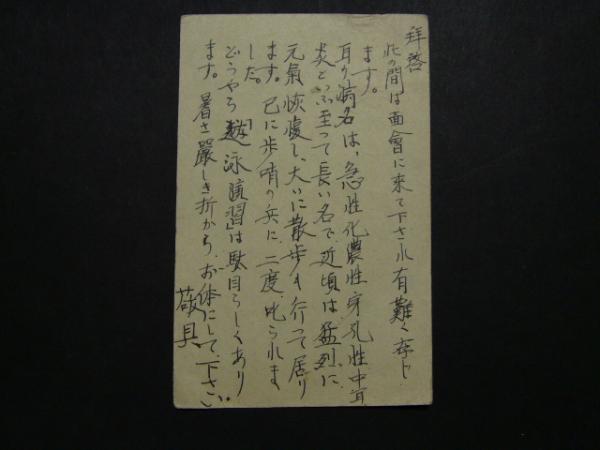 拝啓
此の間は面會に来て下され有難く存じ
ます。
耳の病名は、急性化膿性穿孔性中耳
炎といふ至って長い名で、近頃は猛烈に
元氣恢復し、大いに散歩も行って居り
ます。已に歩哨の兵に二度叱られま
した。
どうやら「遊泳演習」は駄目らしくあり
ます。暑さ厳しき折から、お体にして下さい。
敬具